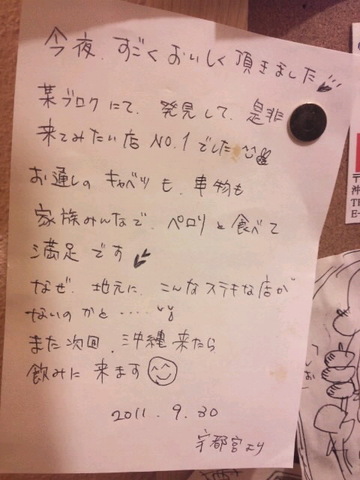 今夜、すごくおいしく頂きました
某ブログにて、発見して、是非
来てみたい店NO.1でした
お通しのキャベツも、串物も
家族みんなで、ペロリと食べて
満足です
なぜ、地元に、こんなステキな店が
ないのかと・・・・・
また次回、沖縄来たら
飲みに来ます
2011.9.30
宇都宮より
〒
沖
TE
E-